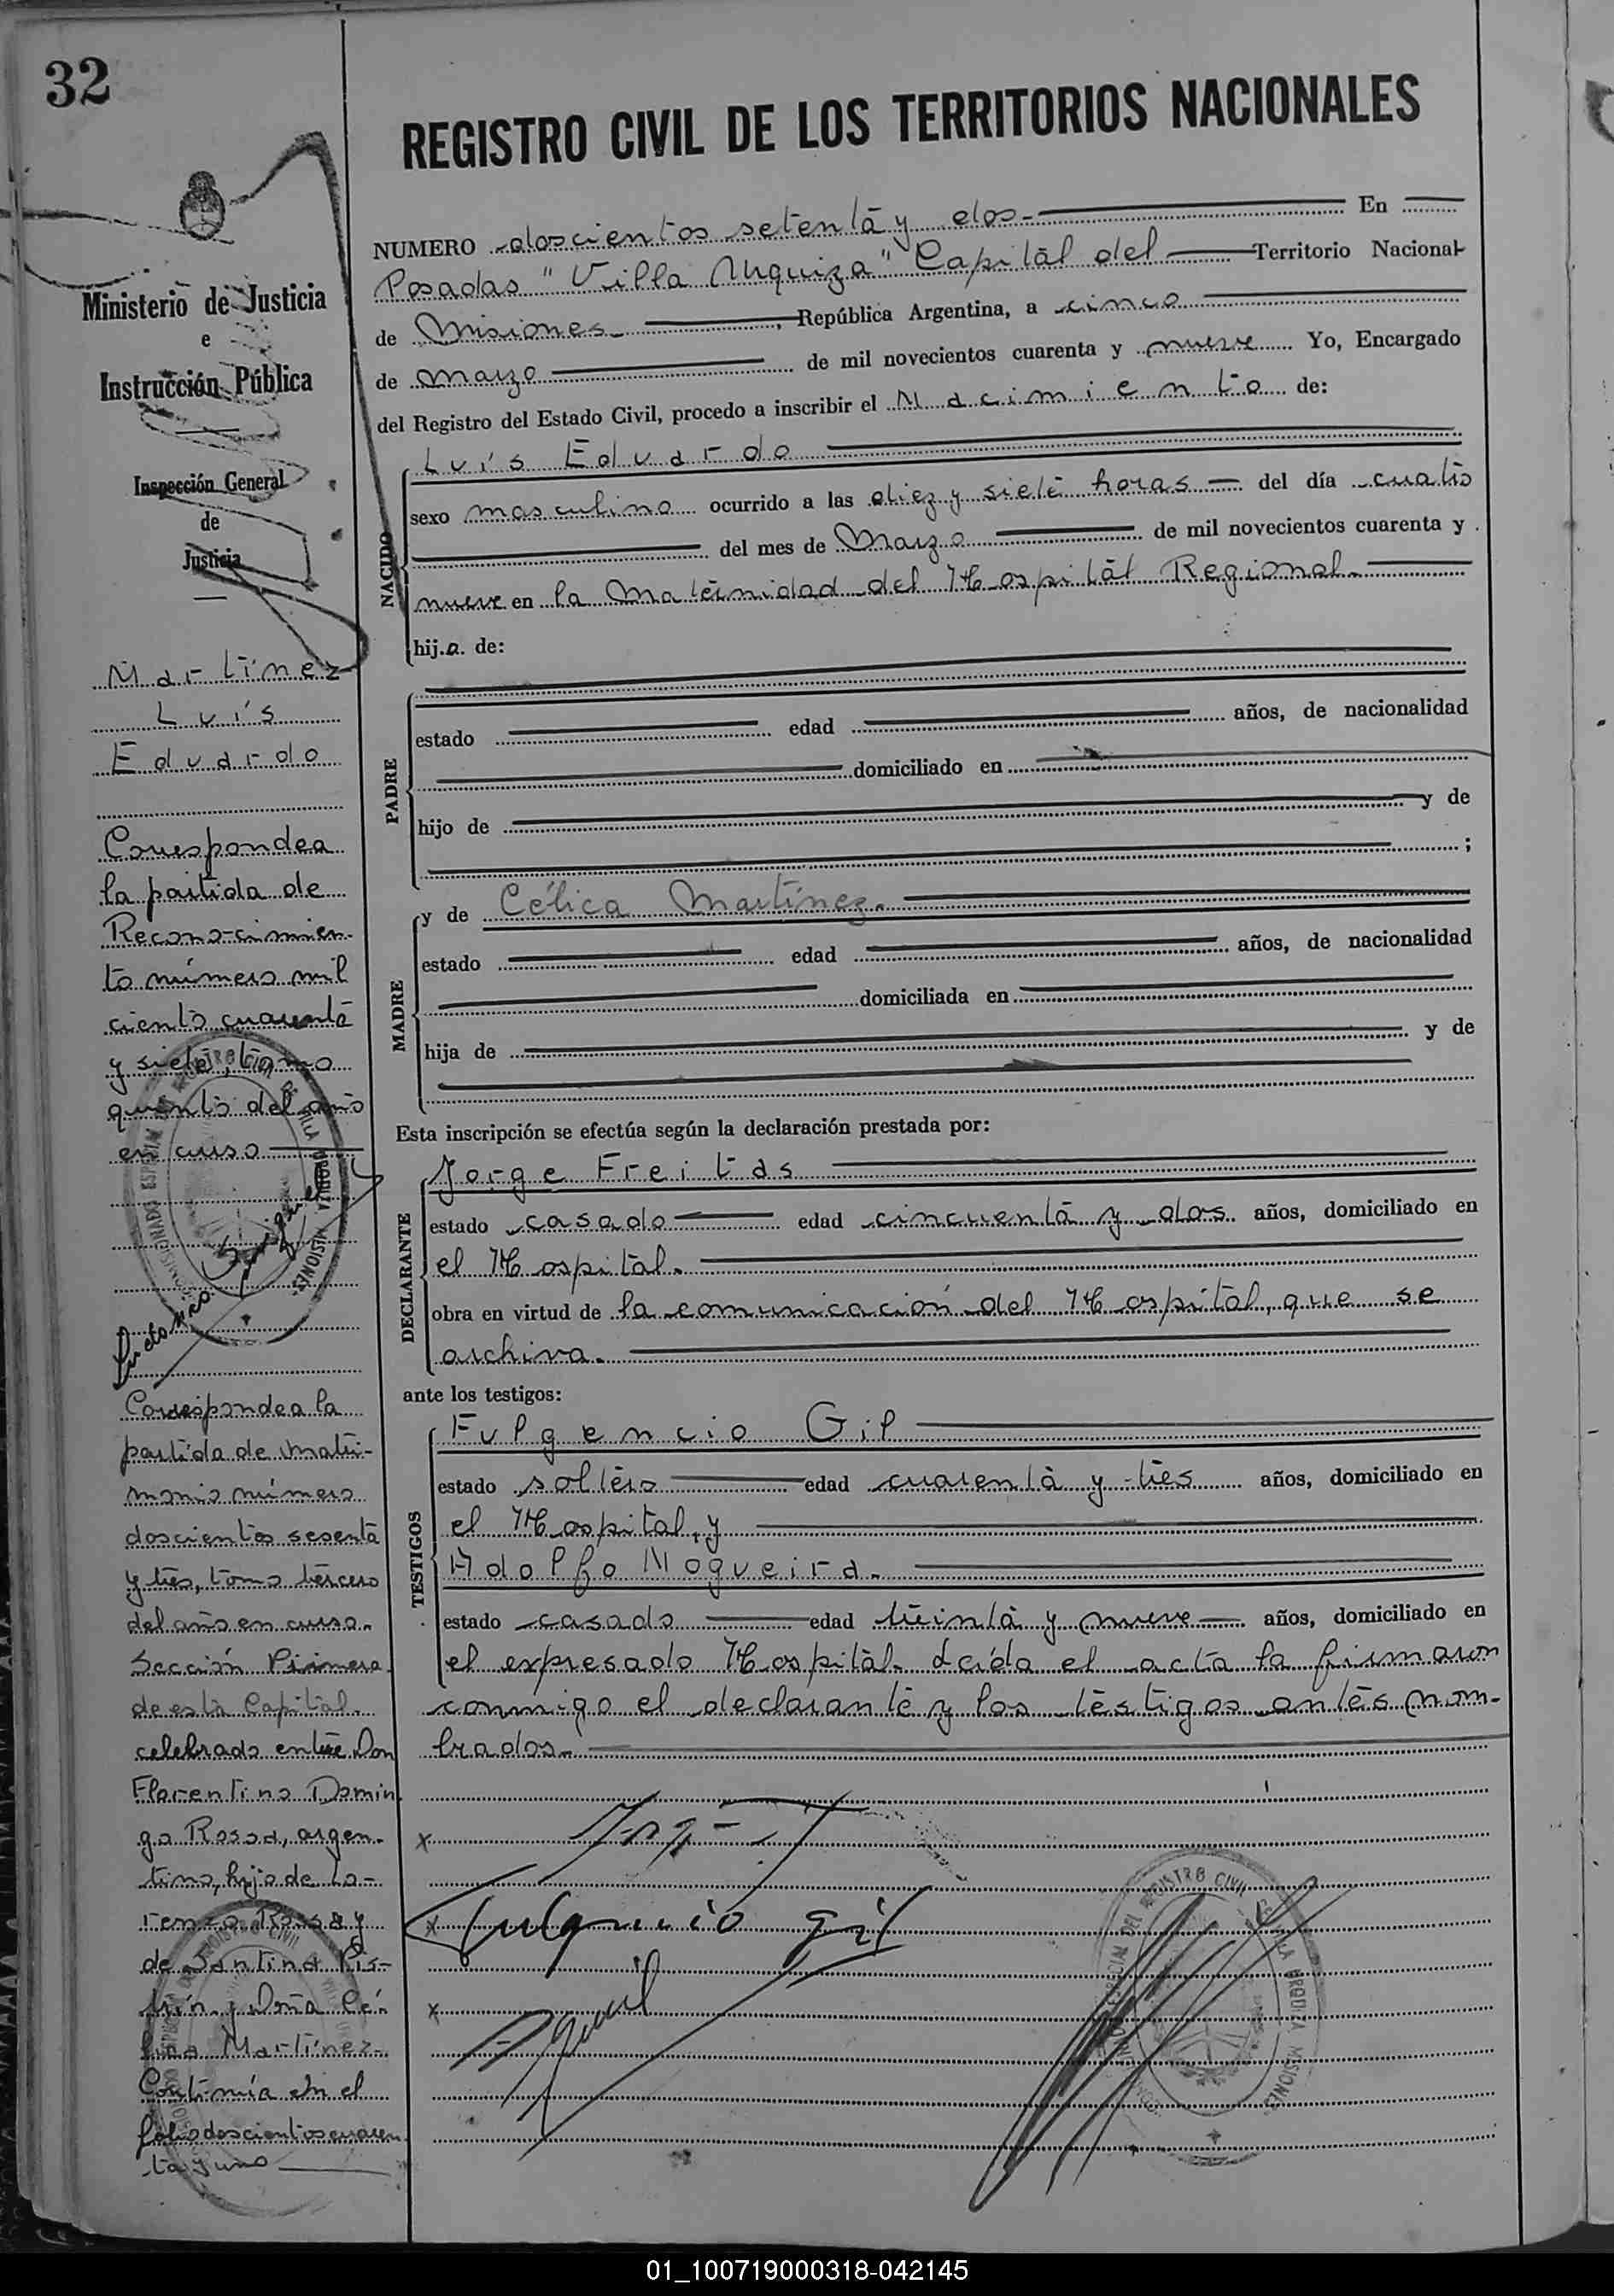 32
REGISTRO CIVIL DE LOS TERRITORIOS NACIONALES
Ministerio de Justicia
e
Instrucción Pública
Inspección General
de
Justicia
Martínez
Luís
Eduardo
Corresponde a
la partida de
Reconocimien-
to número mil
ciento cuarenta
y siete, tomo
quinto del año
en curso
Corresponde a la
partida de matri-
monio número
doscientos sesenta
y tres, tomo tercero
del año en curso.
Sección Primera
de esta Capital.
celebrado entre Don
Florentino Domin
go Rossa, argen-
tino, hijo de Lo-
renzo Rossa y
de Santina
y Doña Cé-
lica Martínez-
Continúa en el
folio doscientos cuaren
ta y uno
NUMERO doscientos setenta y dos.- En
Posadas "Villa Urquiza" Capital del Territorio Nacional
de Misiones. , República Argentina, a cinco
de marzo de mil novecientos cuarenta y nueve Yo, Encargado
del Registro del Estado Civil, procedo a inscribir el Nacimiento de:
NACIDO
Luís Eduardo
sexo masculino ocurrido a las diez y siete horas — del día cuatro
del mes de Marzo de mil novecientos cuarenta y
nueve en la Maternidad del Hospital Regional.
hij.o. de:
PADRE
estado edad años, de nacionalidad
domiciliado en
hijo de y de
;
MADRE
y de Célica Martínez.
estado edad años, de nacionalidad
domiciliada en
hija de y de
Esta inscripción se efectúa según la declaración prestada por:
DECLARANTE
Jorge Freitas
estado casado edad cincuenta y dos años, domiciliado en
el Hospital.
obra en virtud de la comunicación del Hospital, que se
archiva.
ante los testigos:
TESTIGOS
Fulgencio Gil
estado soltero edad cuarenta y tres años, domiciliado en
el Hospital, y
Adolfo Nogueira.
estado casado edad treinta y nueve años, domiciliado en
el expresado Hospital. Leída el acta la firmaron
conmigo el declarante y los testigos antes nom-
brados.
x
x Fulgencio Gil
x
REGISTRO CIVIL VILLA URQUIZA MISIONES
01_100719000318-042145